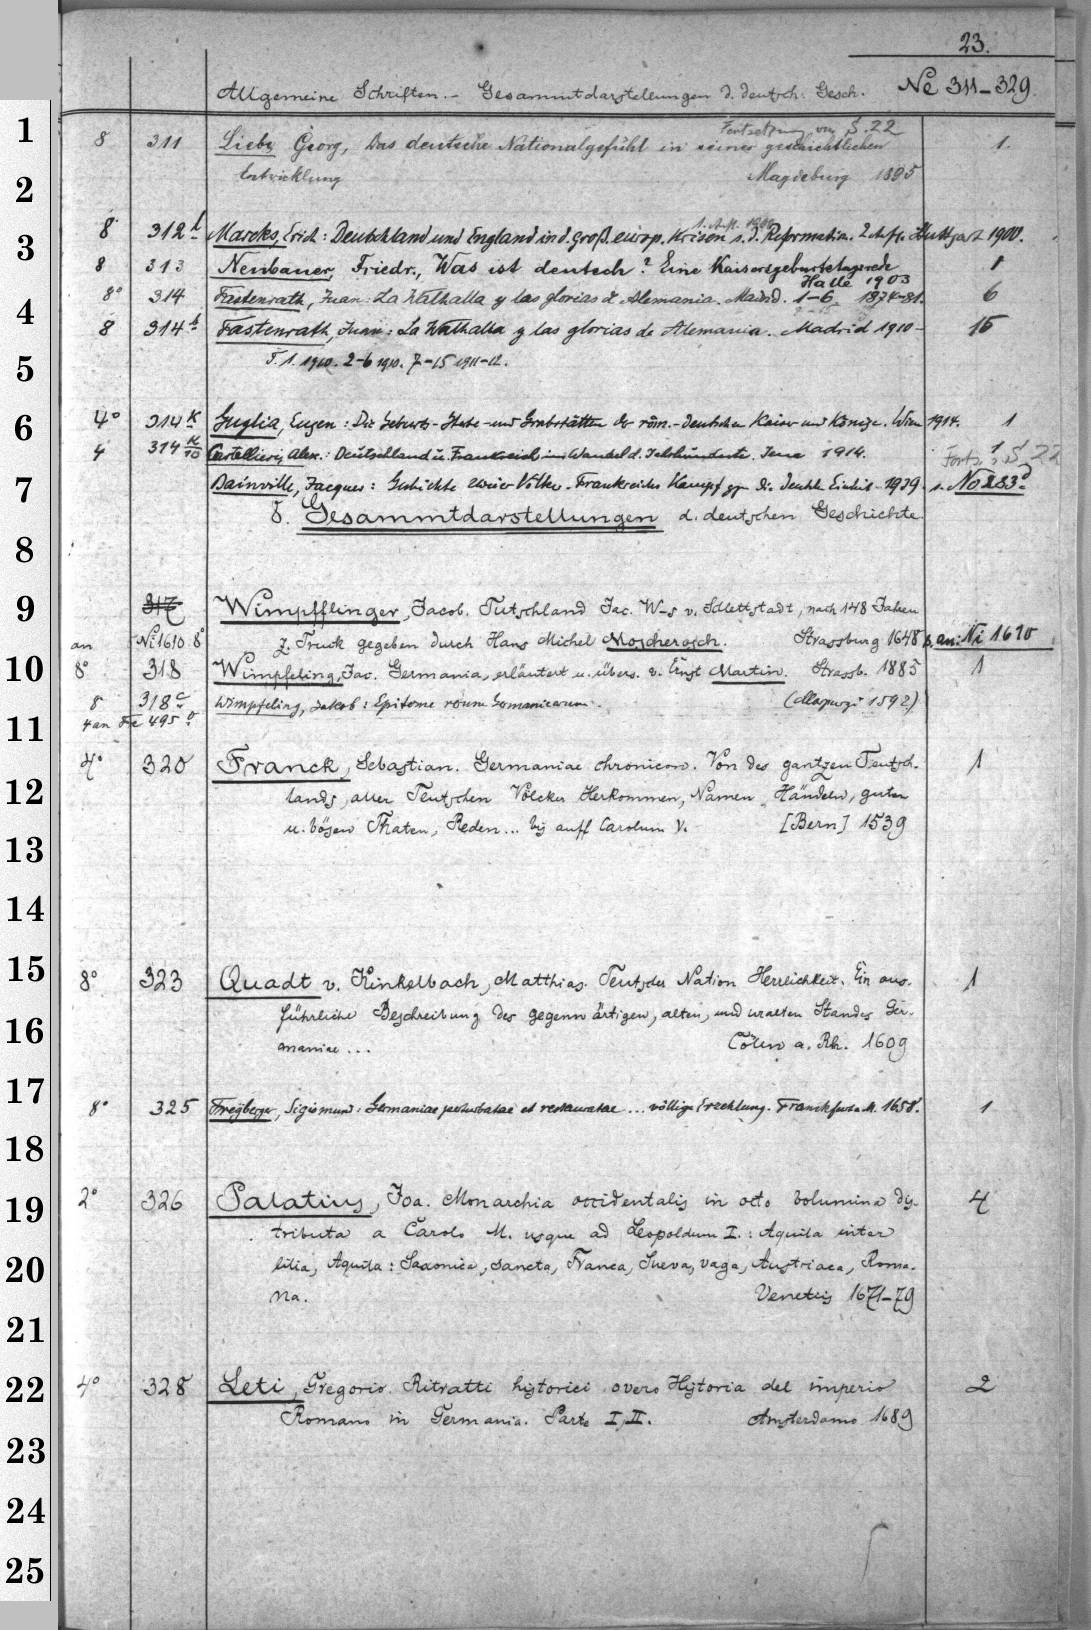 23.
Allgemeine Schriften. - Gesammtdarstellungen d. deutsch. Gesch. Ne 311-329.
Fortsetzung von S. 22
1 8 311 Liebe, Georg, Das deutsche Nationalgefühl in seiner geschichtlichen 1.
2 Entwicklung Magdeburg 1895
1. Aufl. 1900
3 8° 312 Marcks, Erich: Deutschland und England in d. groß. europ. Krisen s. d. Reformation. 2. Aufl. Stuttgart 1900.
8 313 Neubauer, Friedr., Was ist deutsch? Eine Kaisersgeburtstagsrede 1
Halle 1903
4 8° 314 Fastenrath, Juan: La Walhalla y las glorias de Alemania. Madrid. 1-6 1874-81. 6
8 314 b Fastenrath, Juan: La Walhalla y las glorias de Alemania. Madrid 1910- 15
5 T. 1. 1910. 2-6 1910. 7-15 1911-12.
6 4° 314 K Guglia, Eugen: Die Geburts- Sterbe- und Grabstätten der röm.-deutschen Kaiser und Könige. Wien 1914. 1
4 314 K/10 Cartellieri, Alex.: Deutschland u. Frankreich im Wandel d. Jahrhunderte. Jena 1914. 1
Forts. S. 22
7 Bainville, Jacques: Geschichte zweier Völker. Frankreichs Kampf gg. die deutsche Einheit 1939 s. No 283
δ. Gesammtdarstellungen d. deutschen Geschichte.
8
9 317 Wimpfflinger, Jacob. Tutschland Jac. W-s v. Schlettstadt, nach 148 Jahren
an Ni 1610 8° z. Truck gegeben durch Hans Michel Moscherosch. Strassburg 1648 8. an: Ni 1610
10 8° 318 Wimpfeling, Jac. Germania, erläutert u. übers. v. Ernst Martin. Strassb. 1885 1
8 318 c Wimpfeling, Jakob: Epitome rerum Germanicarum. 1592)
11 4 an 495
4° 320 Franck, Sebastian. Germaniae chronicon. Von des gantzen Teutsch- 1
12 lands, aller Teutschen Völcker Herkommen, Namen, Händeln, guten
u. bösen Thaten, Reden... biß auff Carolum V. [Bern] 1539
13
14
15 8° 323 Quadt v. Kinkelbach, Matthias. Teutscher Nation Herrlichkeit. Ein aus- 1
16 führliche Beschreibung des gegenwärtigen, alten, und uralten Standes Ger-
maniae ... Cöln a. Rh. 1609
17 8° 325 Freyberger, Sigismund: Germaniae perturbatae et restauratae ... völlige Erzehlung. Franckfurt a. M. 1658. 1
18
19 2° 326 Palatius, Joa. Monarchia occidentalis in octo volumina dis- 4
tributa a Carolo M. usque ad Leopoldum I.: Aquila inter
20 lilia, Aquila: Saxonica, sancta, Franca, Sueva, vaga, Austriaca, Roma-
na. Venetiis 1671-79
21
22 4° 328 Leti, Gregorio. Ritratti historici overo Historia del imperio 2
Romano in Germania. Parte I, II. Amsterdamo 1689
23
24
25